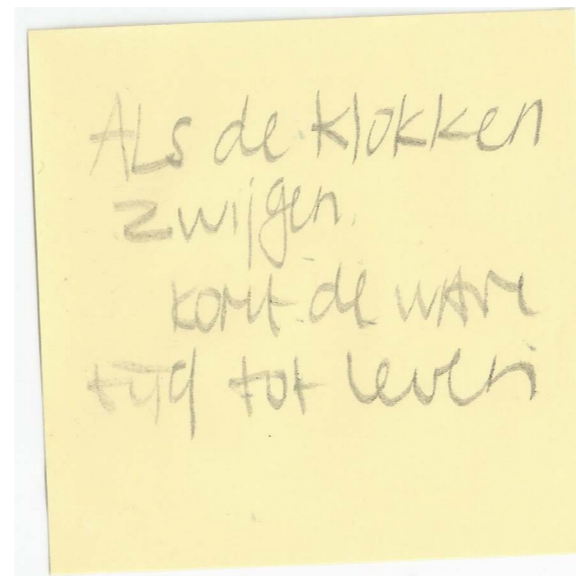 Als de klokken
zwijgen,
komt de ware
tijd tot leven